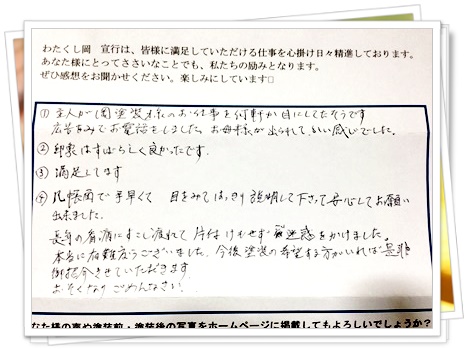 わたくし岡　宣行は、皆様に満足していただける仕事を心掛け日々精進しております。
あなた様にとってささいなことでも、私たちの励みとなります。
ぜひ感想をお聞かせください。楽しみにしています□
① 主人が岡塗装様のお仕事を何軒か目にしてたそうです
広告をみてお電話をしました。お母様が出られていい感じでした。
② 印象はすばらしく良かったです。
③ 満足してます
④ 几帳面で手早くて 目をみてはっきり説明して下さって安心してお願い
出来ました。
長年の肩痛にすこし疲れて片付けせず ご迷惑をかけました。
本当に有難度うございました。今後塗装の希望する方がいれば是非
御紹介させていただきます
おそくなりごめんなさい!
なた様の声や塗装前・塗装後の写真をホームページに掲載してもよろしいでしょうか?